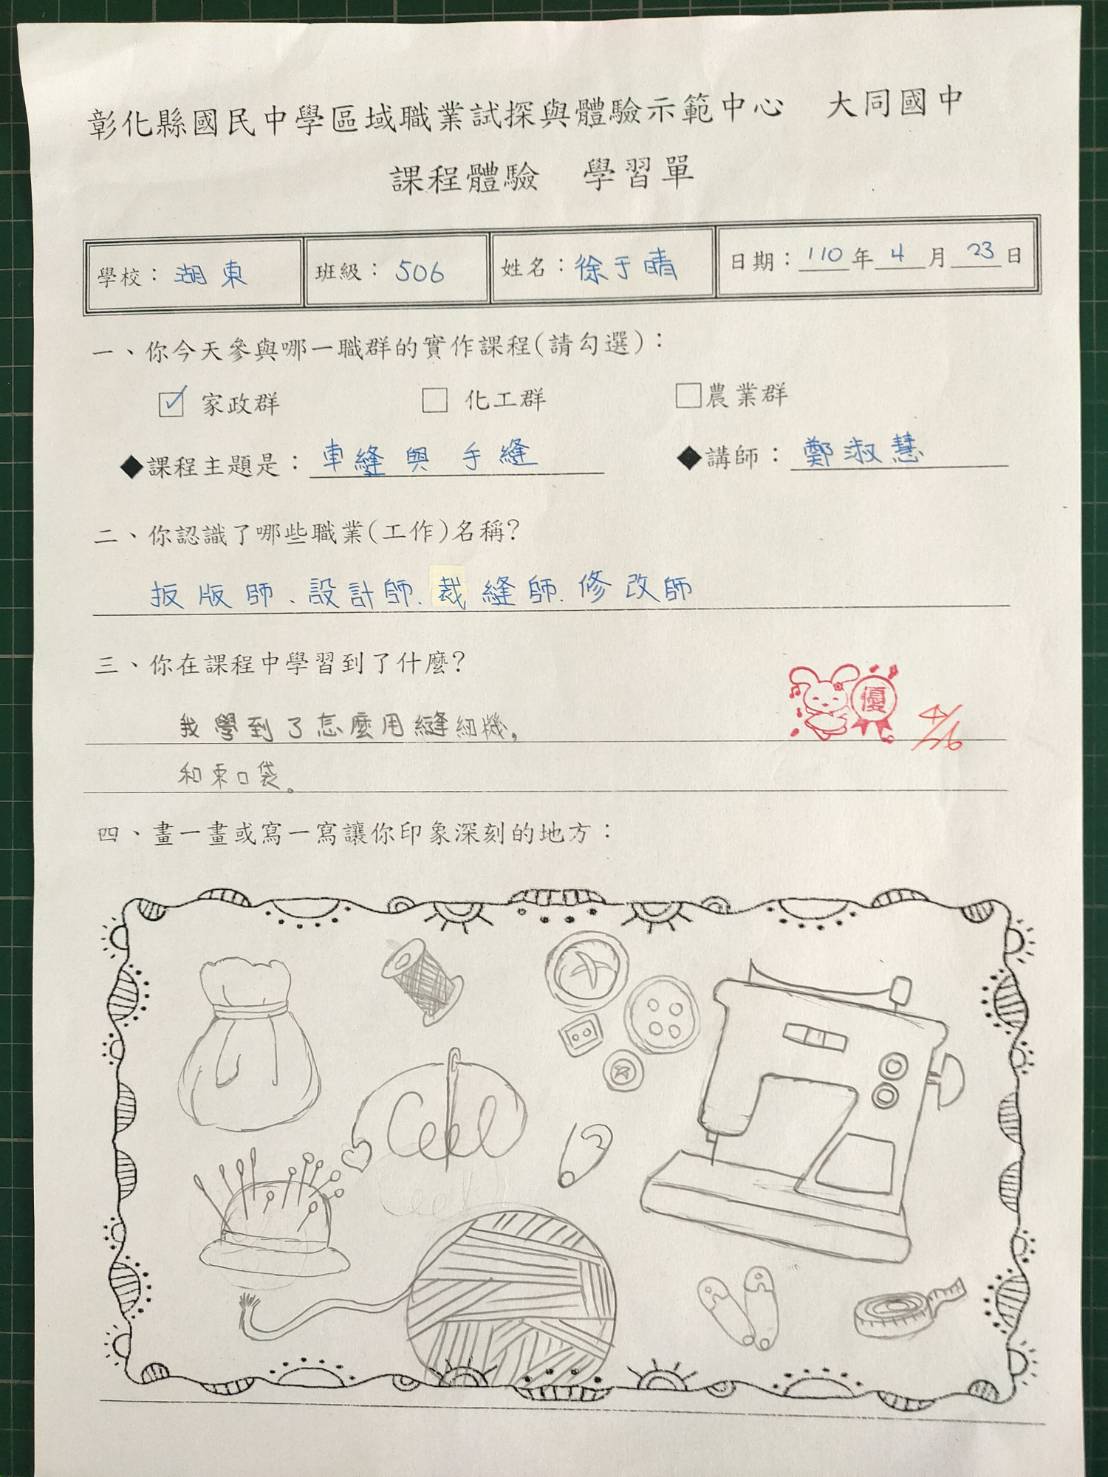 彰化縣國民中學區域職業試探與體驗示範中心　大同國中
課程體驗　學習單
學校：湖東 班級：506 姓名：徐于晴 日期：110年4月23日
一、你今天參與哪一職群的實作課程(請勾選)：
☑ 家政群 □ 化工群 □農業群
◆課程主題是：車縫與手縫 ◆講師：鄭淑慧
二、你認識了哪些職業(工作)名稱?
扳版師、設計師.裁縫師.修改師
三、你在課程中學習到了什麼?
我學到了怎麼用縫紉機，
優 4/26
和束口袋。
四、畫一畫或寫一寫讓你印象深刻的地方：